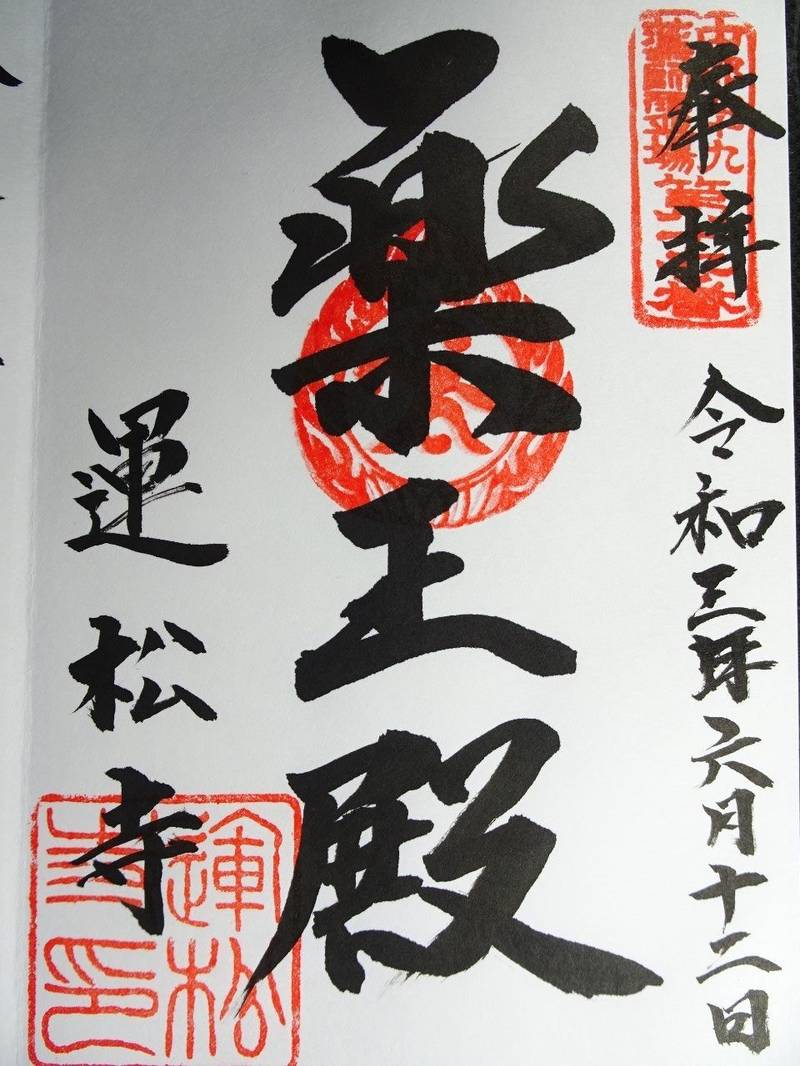 奉拝
令和三年六月十二日
薬王殿
運松寺
運松
寺印